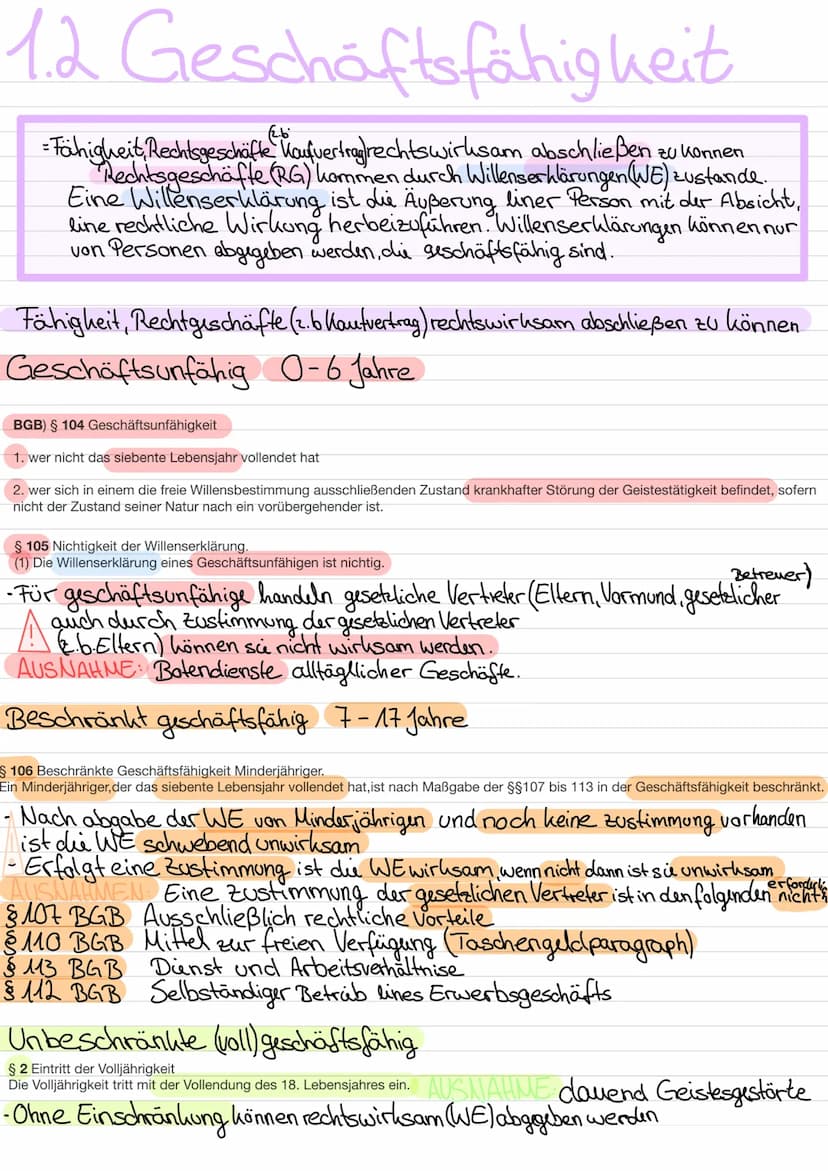 1.2 Geschäftsfähigkeit
=Fähigkeit, Rechtsgeschäfte (z.b Kaufvertrag) rechtswirksam abschließen zu können
Rechtsgeschäfte (RG) kommen durch Willenserklärungen (WE) zustande.
Eine Willenserklärung ist die Äußerung einer Person mit der Absicht,
eine rechtliche Wirkung herbeizuführen. Willenserklärungen können nur
von Personen abgegeben werden, die geschäftsfähig sind.
Fähigkeit, Rechtgeschäfte (z.b Kaufvertrag) rechtswirksam abschließen zu können
Geschäftsunfähig 0-6 Jahre
BGB) § 104 Geschäftsunfähigkeit
1. wer nicht das siebente Lebensjahr vollendet hat
2. wer sich in einem die freie Willensbestimmung ausschließenden Zustand krankhafter Störung der Geistestätigkeit befindet, sofern
nicht der Zustand seiner Natur nach ein vorübergehender ist.
§ 105 Nichtigkeit der Willenserklärung.
(1) Die Willenserklärung eines Geschäftsunfähigen ist nichtig.
-Für geschäftsunfähige handeln gesetzliche Vertreter (Eltern, Vormund, gesetzlicher Betreuer)
auch durch Zustimmung der gesetzlichen Vertreter
(z.b. Eltern) können sie nicht wirksam werden.
AUSNAHME: Botendienste alltäglicher Geschäfte.
Beschränkt geschäftsfähig 7-17 Jahre
§ 106 Beschränkte Geschäftsfähigkeit Minderjähriger.
Ein Minderjähriger,der das siebente Lebensjahr vollendet hat,ist nach Maßgabe der §§107 bis 113 in der Geschäftsfähigkeit beschränkt.
- Nach abgabe der WE von Minderjährigen und noch keine zustimmung vorhanden
ist die WE schwebend unwirksam
- Erfolgt eine Zustimmung ist die WE wirksam, wenn nicht dann ist sie unwirksam
AUSNAHMEN: Eine Zustimmung der gesetzlichen Vertreter ist in den folgenden nicht erforderli
§107 BGB Ausschließlich rechtliche Vorteile
§110 BGB Mittel zur freien Verfügung (Taschengeldparagraph)
§ 113 BGB Dienst und Arbeitsverhältnise
§ 112 BGB Selbständiger Betrieb eines Erwerbsgeschäfts
Unbeschränkte (voll) geschäftsfähig
§ 2 Eintritt der Volljährigkeit
Die Volljährigkeit tritt mit der Vollendung des 18. Lebensjahres ein. AUSNAHME: dauend Geistesgestörte
-Ohne Einschränkung können rechtswirksam (WE) abgegeben werden